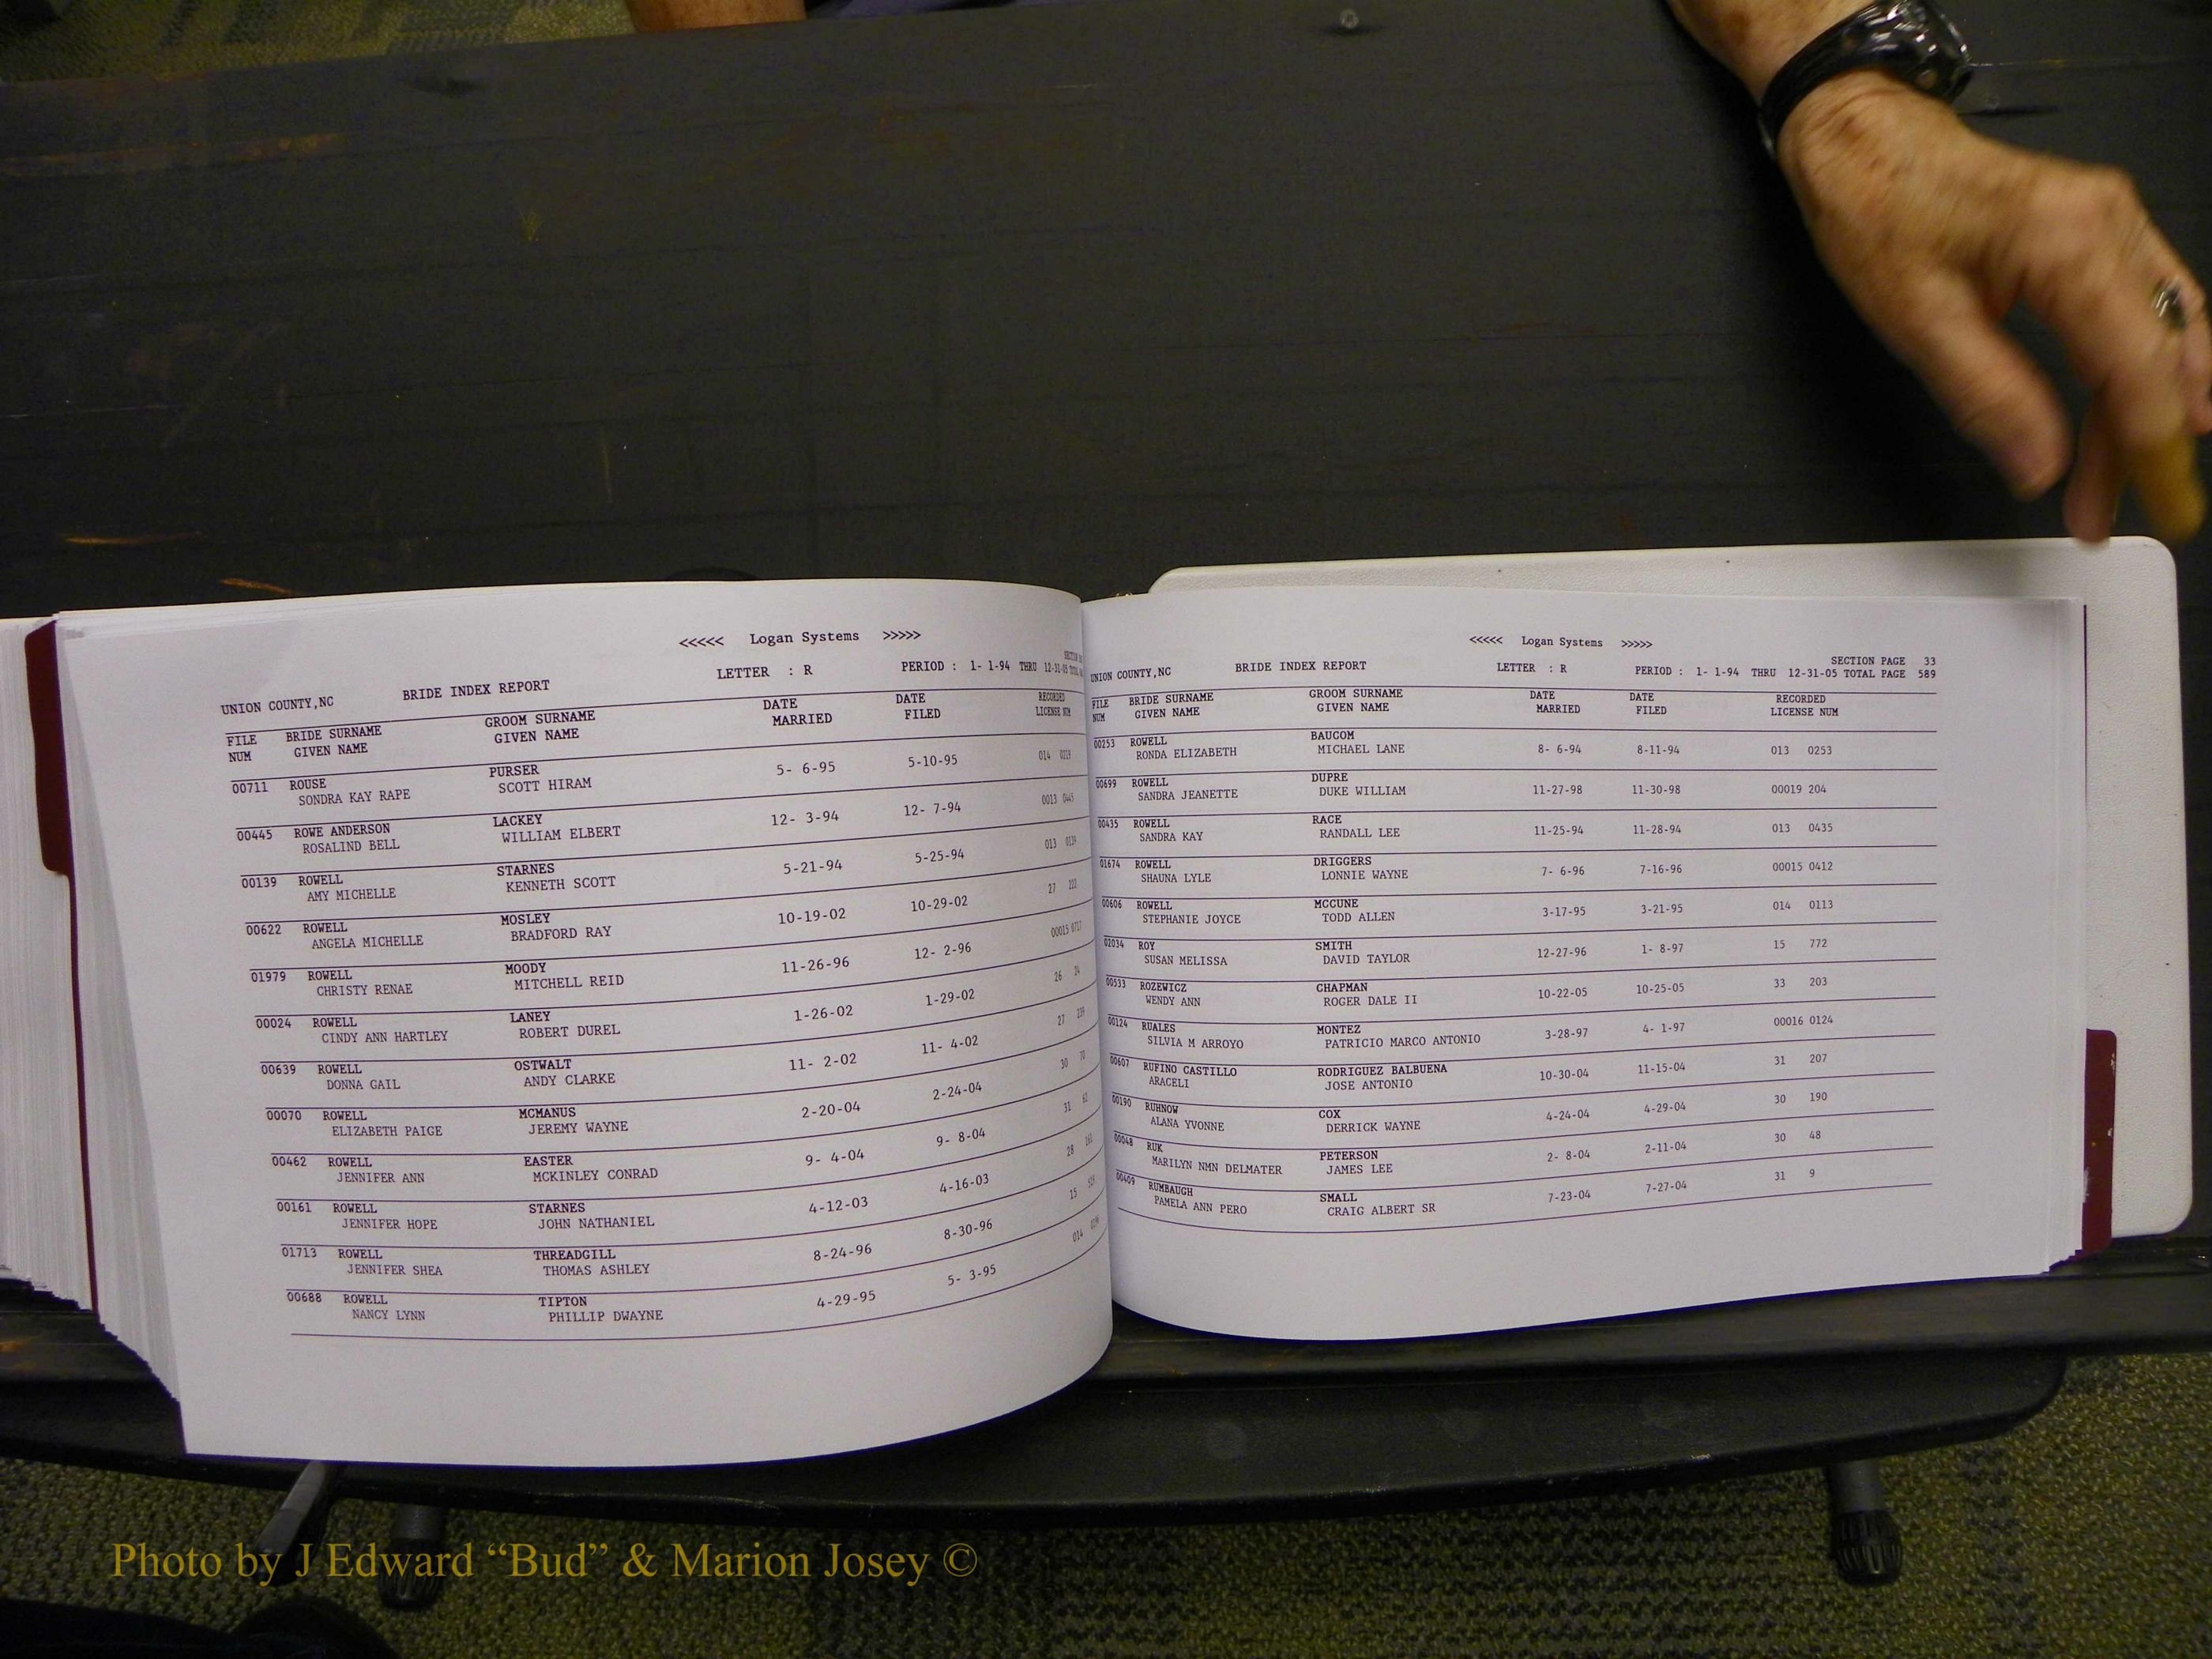 <<<<< Logan Systems >>>>>
UNION COUNTY,NC BRIDE INDEX REPORT LETTER : R PERIOD : 1- 1-94 THRU 12-31-05
FILE BRIDE SURNAME GROOM SURNAME DATE DATE RECORDED
NUM GIVEN NAME GIVEN NAME MARRIED FILED LICENSE NUM
00711 ROUSE PURSER 5- 6-95 5-10-95 014
SONDRA KAY RAPE SCOTT HIRAM
00445 ROWE ANDERSON LACKEY 12- 3-94 12- 7-94 0013 0445
ROSALIND BELL WILLIAM ELBERT
00139 ROWELL STARNES 5-21-94 5-25-94 013 0139
AMY MICHELLE KENNETH SCOTT
00622 ROWELL MOSLEY 10-19-02 10-29-02 27
ANGELA MICHELLE BRADFORD RAY
01979 ROWELL MOODY 11-26-96 12- 2-96 00015 0717
CHRISTY RENAE MITCHELL REID
00024 ROWELL LANEY 1-26-02 1-29-02 26 24
CINDY ANN HARTLEY ROBERT DUREL
00639 ROWELL OSTWALT 11- 2-02 11- 4-02 27 239
DONNA GAIL ANDY CLARKE
00070 ROWELL MCMANUS 2-20-04 2-24-04 30 70
ELIZABETH PAIGE JEREMY WAYNE
00462 ROWELL EASTER 9- 4-04 9- 8-04 31 62
JENNIFER ANN MCKINLEY CONRAD
00161 ROWELL STARNES 4-12-03 4-16-03 28 161
JENNIFER HOPE JOHN NATHANIEL
01713 ROWELL THREADGILL 8-24-96 8-30-96 15
JENNIFER SHEA THOMAS ASHLEY
00688 ROWELL TIPTON 4-29-95 5- 3-95 014
NANCY LYNN PHILLIP DWAYNE
<<<<< Logan Systems >>>>>
SECTION PAGE 33
UNION COUNTY,NC BRIDE INDEX REPORT LETTER : R PERIOD : 1- 1-94 THRU 12-31-05 TOTAL PAGE 589
FILE BRIDE SURNAME GROOM SURNAME DATE DATE RECORDED
NUM GIVEN NAME GIVEN NAME MARRIED FILED LICENSE NUM
00253 ROWELL BAUCOM 8- 6-94 8-11-94 013 0253
RONDA ELIZABETH MICHAEL LANE
00699 ROWELL DUPRE 11-27-98 11-30-98 00019 204
SANDRA JEANETTE DUKE WILLIAM
00435 ROWELL RACE 11-25-94 11-28-94 013 0435
SANDRA KAY RANDALL LEE
01674 ROWELL DRIGGERS 7- 6-96 7-16-96 00015 0412
SHAUNA LYLE LONNIE WAYNE
00606 ROWELL MCCUNE 3-17-95 3-21-95 014 0113
STEPHANIE JOYCE TODD ALLEN
02034 ROY SMITH 12-27-96 1- 8-97 15 772
SUSAN MELISSA DAVID TAYLOR
00533 ROZEWICZ CHAPMAN 10-22-05 10-25-05 33 203
WENDY ANN ROGER DALE II
00124 RUALES MONTEZ 3-28-97 4- 1-97 00016 0124
SILVIA M ARROYO PATRICIO MARCO ANTONIO
00607 RUFINO CASTILLO RODRIGUEZ BALBUENA 10-30-04 11-15-04 31 207
ARACELI JOSE ANTONIO
00190 RUHNOW COX 4-24-04 4-29-04 30 190
ALANA YVONNE DERRICK WAYNE
00048 RUK PETERSON 2- 8-04 2-11-04 30 48
MARILYN NMN DELMATER JAMES LEE
00409 RUMBAUGH SMALL 7-23-04 7-27-04 31 9
PAMELA ANN PERO CRAIG ALBERT SR
Photo by J Edward “Bud” & Marion Josey ©